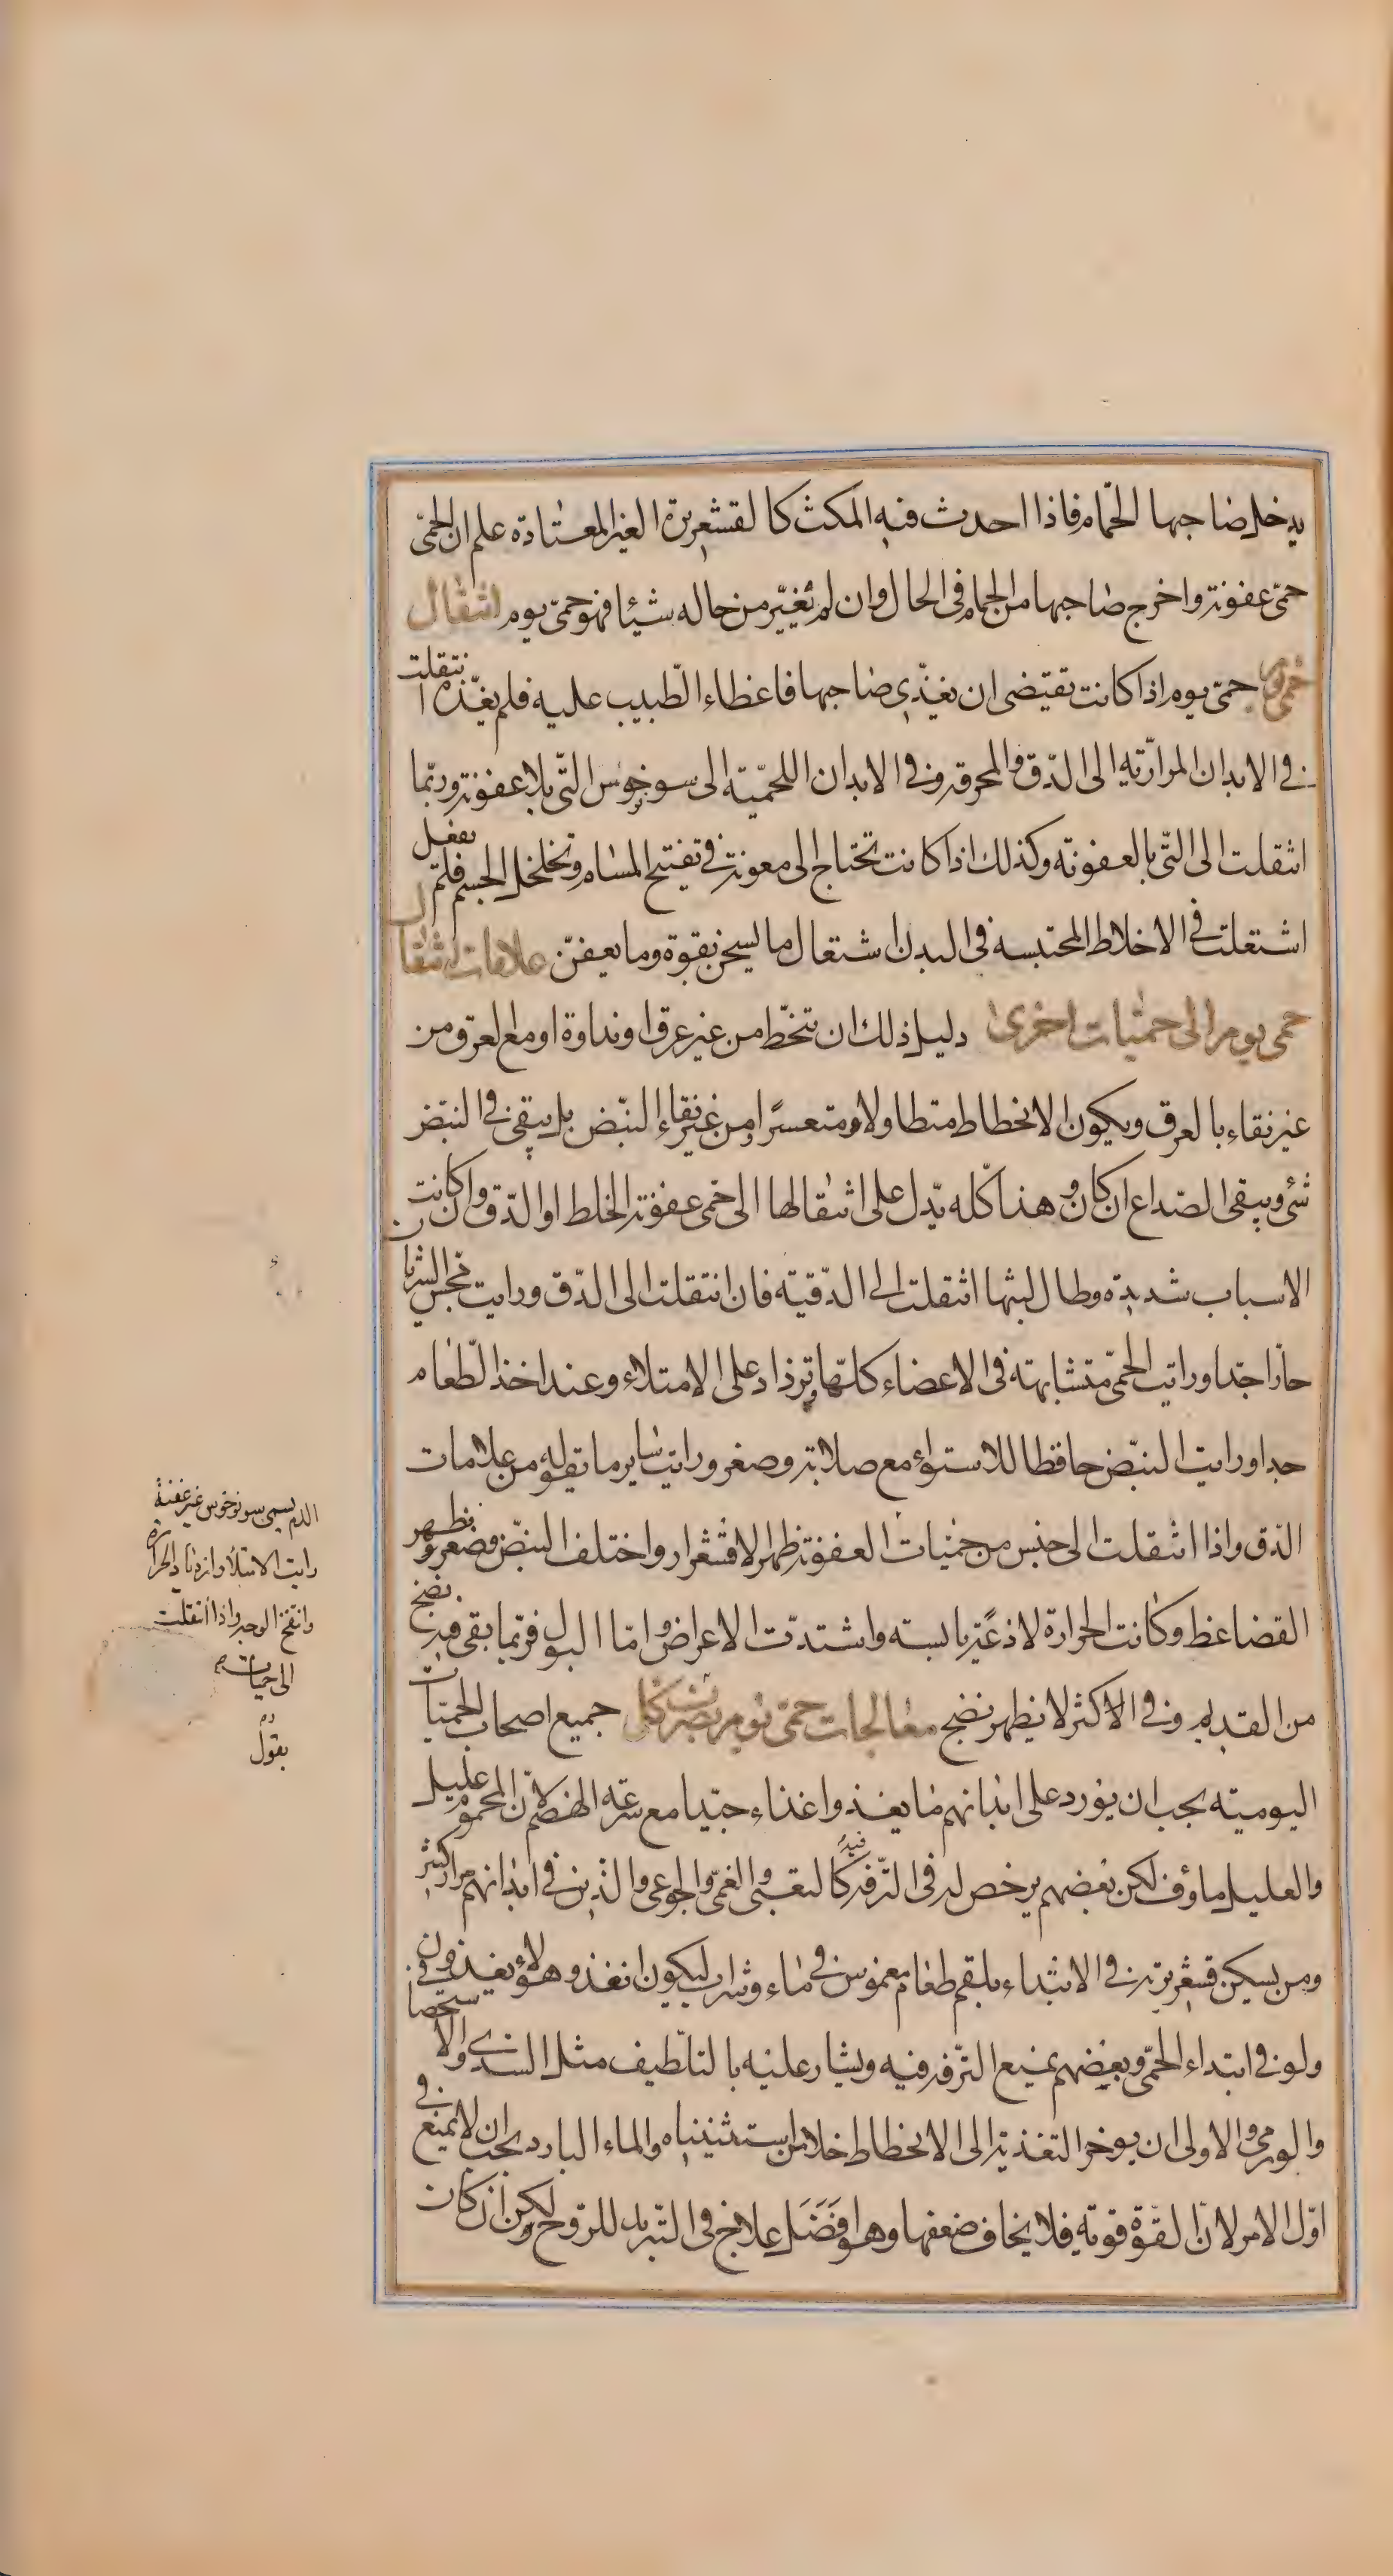 يدخل صاحبها الحمّام فاذا احدث فيه المكث كالقشعريرة الغير المعتادة علم ان الحمّى
حمّى عفونة واخرج صاحبها من الحمام فى الحال وان لم تغيّر من حاله شيئا فهو حمّى يوم انتقال
حمى يوم حمّى يوم اذا كانت تقتضى ان يغذّى صاحبها فاخطاء الطبيب عليه فلم يغذه انتقلت
فى الابدان المرارّية الى الدّق والمحرقه وفى الابدان اللحمّية الى سونوخوس التّى بلا عفونة وربّما
انتقلت الى التّى بالعفونه وكذلك اذا كانت تحتاج الى معونة فى تفتيح المسام وتخلخل الجسم فلم يفعل
اشتعلت فى الاخلاط المحتبسه فى البدن اشتعال ما يسخن بقوة وما يعفن علامات انتقال
حمى يوم الى حميات اخرى دليل ذلك ان تنحّط من غير عرق او نداوة او مع العرق من
غير نقاء بالعرق ويكون الانحطاط متطاولا ومتعسرًا من غير نقاء النبّض بل يبقى فى النبض
شئ ويبقى الصداع ان كان وهذا كلّه يدّل على انتقالها الى حمى عفونة الخلط او الدّق وان كانت
الاسباب شديدة وطال لبثها انتقلت الى الدّقية فان انتقلت الى الدّق ورايت مجس الشريان
حارّا جدّا ورايت الحمّى متشابهة فى الاعضاء كلّها وتزداد على الامتلاء وعند اخذ الطّعام
جدا ورايت النبّض حافظا للاستواء مع صلابة وصغر ورايت ساير ما تقوله من علامات
الدّق واذا انتقلت الى جنس من حميات العفونة ظهر الاقشعرار واختلف النبّض وصغر وظهر
القضاغط وكانت الحرارة لاذعة يابسه واشتدّت الاعراض وامّا البول فربّما بقى فيه نضج
من القديم وفى الاكثر لا يظهر نضج معالجات حمّى يوم بضرب كلى جميع اصحاب الحميات
اليوميّه يجب ان يورد على ابدانهم ما يغذوا غذاء جيّدا مع سرعة الهضم لان المحموم عليل
والعليل ماؤف لكن بعضهم يرخص له فى الترّفه فيه كالتعبى والغمّى والجوعى والذين فى ابدانهم مرار كثير
ومن يسكن قشعريرته فى الابتداء بلقم طعام مغموس فى ماء وشراب ليكون انفذ وهؤلاء يغذون
ولو فى ابتداء الحمّى وبعضهم يمنع الترّفه فيه ويشار عليه بالتلطيف مثل السددى والاستحصافى
والورمى والاولى ان يوخر التغذية الى الانحطاط خلا من استثنيناه والماء البارد يجب ان لا يمنع فى
اوّل الامر لان القوة قوية فلا يخاف ضعفها وهو افضل علاج فى التبريد للروح لكن ان كان
الدم يسمى سونوخوس غير عفنة
رايت الامتلأ وازدياد الحرارة
وانتفخ الوجه واذا انتقلت
الى حميات
دم
بقول